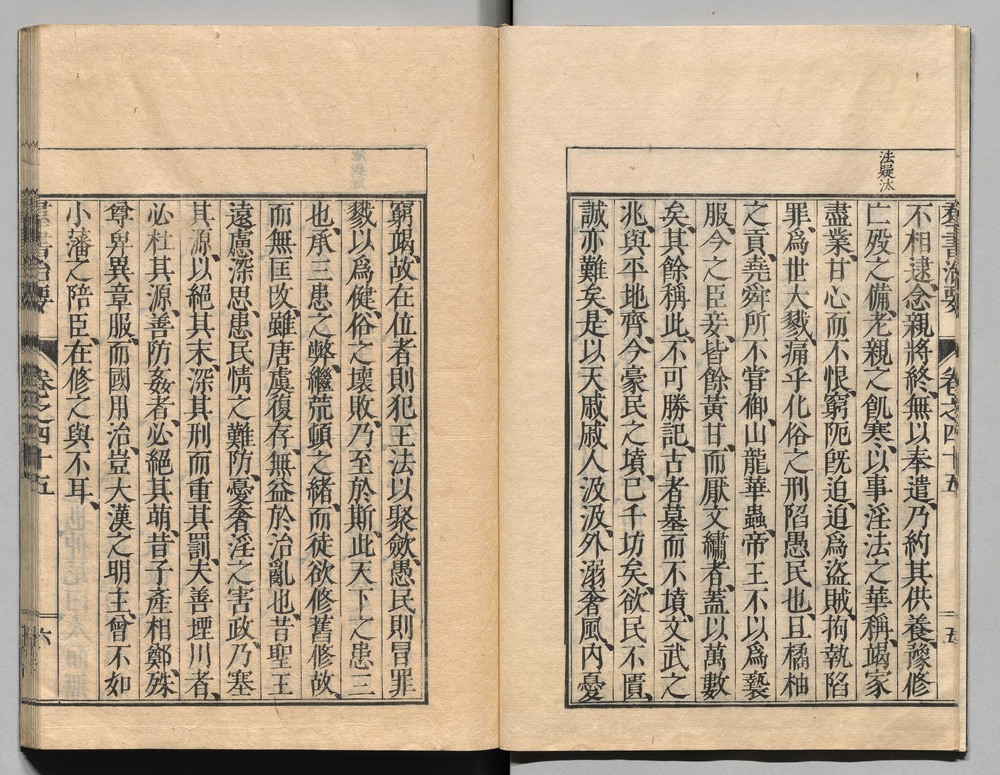 法疑汰
羣書治要 卷之四十五 五
不相逮、念親將終、無以奉遣、乃約其供養、豫修
亡歿之備、老親之飢寒、以事淫法之華稱、竭家
盡業、甘心而不恨、窮阨既迫、迫爲盜賊、拘執陷
罪、爲世大戮、痛乎化俗之刑陷愚民也、且橘柚
之貢、堯舜所不甞御、山龍華蟲、帝王不以爲褻
服、今之臣妾、皆餘黃甘、而厭文繡者、蓋以萬數
矣、其餘稱此、不可勝記、古者墓而不墳、文武之
兆、與平地齊、今豪民之墳、已千坊矣、欲民不匱、
誠亦難矣、是以天戚戚人汲汲、外溺奢風、內憂
窮竭、故在位者則犯王法以聚斂、愚民則冒罪
戮以爲健、俗之壞敗、乃至於斯、此天下之患三
也、承三患之弊、繼荒頓之緒、而徒欲修舊修故、
而無匡攺、雖唐虞復存、無益於治亂也、昔聖王
遠慮深思、患民情之難防、憂奢淫之害政、乃塞
其源、以絕其末、深其刑而重其罰、夫善堙川者、
必杜其源、善防姦者、必絕其萌、昔子產相鄭、殊
尊卑異章服、而國用治、豈大漢之明主、曾不如
小藩之陪臣、在修之與不耳、
羣書治要 卷之四十五 六